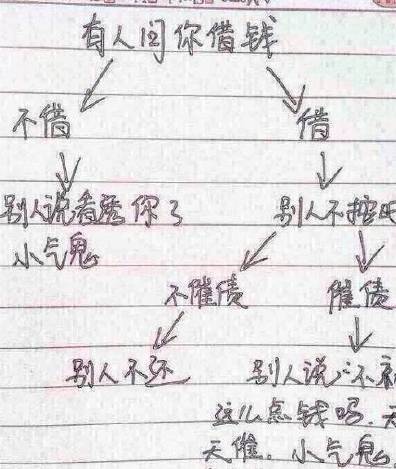 有人问你借钱
不借 借
别人说看透你了 别人不按
小气鬼
不催债 催债
别人不还 别人说:不就
这么点钱吗.天
天催.小气鬼